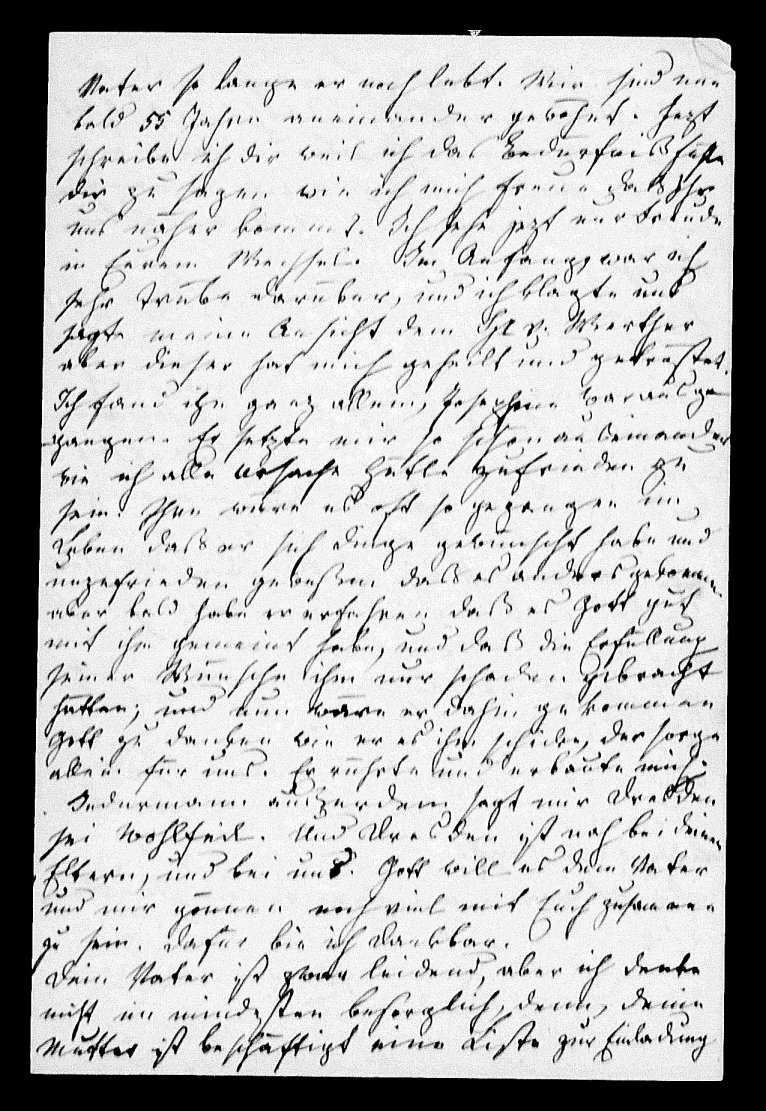 Vater so lange er noch lebt. Wir sind nun
bald 55 Jahre aneinander gewöhnt. Jezt
schreibe ich dir weil ich das Bedürfniss fühle
dir zu sagen wie ich mich freue dass ihr
uns näher kommt. Ich sehe jezt nur Freude
in Eurem Wechsel. Im Anfang war ich
sehr trübe darüber, und ich klagte und
sagte meine Ansicht dem v. Werther
aber dieser hat mich geheilt und getröstet.
Ich fand ihn ganz allein, Josephine war ausge-
gangen. Er sezte mir so schön auseinander
wie ich alle Ursache hätte zufrieden zu
sein. Ihm wäre es oft so gegangen im
Leben dass er sich Dinge gewünscht habe und
unzufrieden gewesen dass es anders gekommen
aber bald habe er erfahren dass es Gott gut
mit ihm gemeint habe, und dass die Erfüllung
seiner Wünsche ihm nur schaden gebracht
hätten; und nun wäre er dahin gekommen
Gott zu danken wie er es ihm schicke, der sorge
allein für uns. Er rührte und erbaute mich.
Jedermann außerdem sagt mir Dresden
sei wohlfeil. Und Dresden ist nah bei deinen
Eltern, und bei uns. Gott will es dem Vater
und mir gönnen noch viel mit Euch zusammen
zu sein. Dafür bin ich dankbar.
Dein Vater ist zwar leidend, aber ich denke
nicht im mindesten besorglich, denn, deine
Mutter ist beschäftigt eine Liste zur Einladung